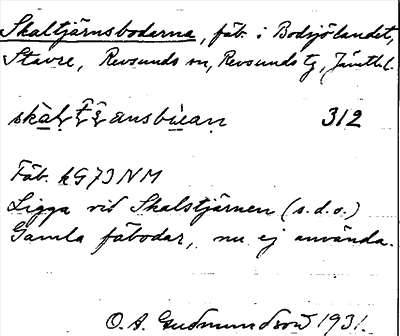 Skaltjärnsbodarna, fäb. i Bodsjölandet,
Stavre, Revsunds sn, Revsunds tg, Jämtl.l.
312
Fäb. kG73NM
Ligga vid Skalstjärnen (s.d.o.)
Gamla fäbodar, nu ej använda.
O. A. Gudmundson 1931.